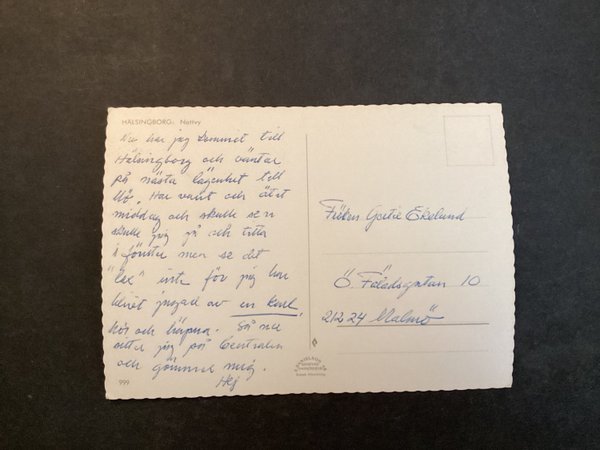 HÄLSINGBORG. Nattvy
Nu har jag kommit till
Hälsingborg och väntar
på nästa lägenhet till
Har varit och ätit
middag och skulle sen
skulle jag gå och titta
i fönster men se det
"lax" inte för jag har
blivit jagad av en karl.
Hör och häpna. Så nu
sitter jag på Centralen
och gömmer mig.
Hej
999
Fröken Ekelund
Ö. Fäladsgatan 10
212 24 Malmö